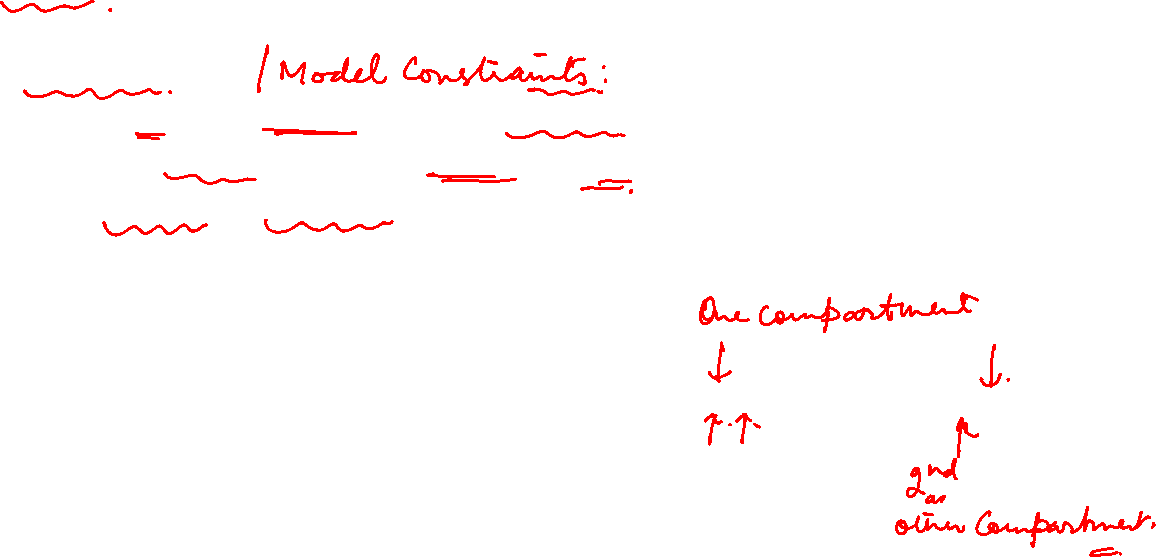 / Model Constraints:
One compartment
↓ ↓.
↑.↑ ↑
2nd
other Compartment.